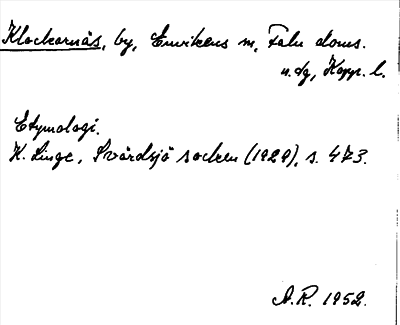 Klockarnäs, by, Envikens sn, Falu doms.
n. dg, Kopp. l.
Etymologi.
K. Linge, Svärdsjö socken (1929), s. 473.
A.R. 1952.